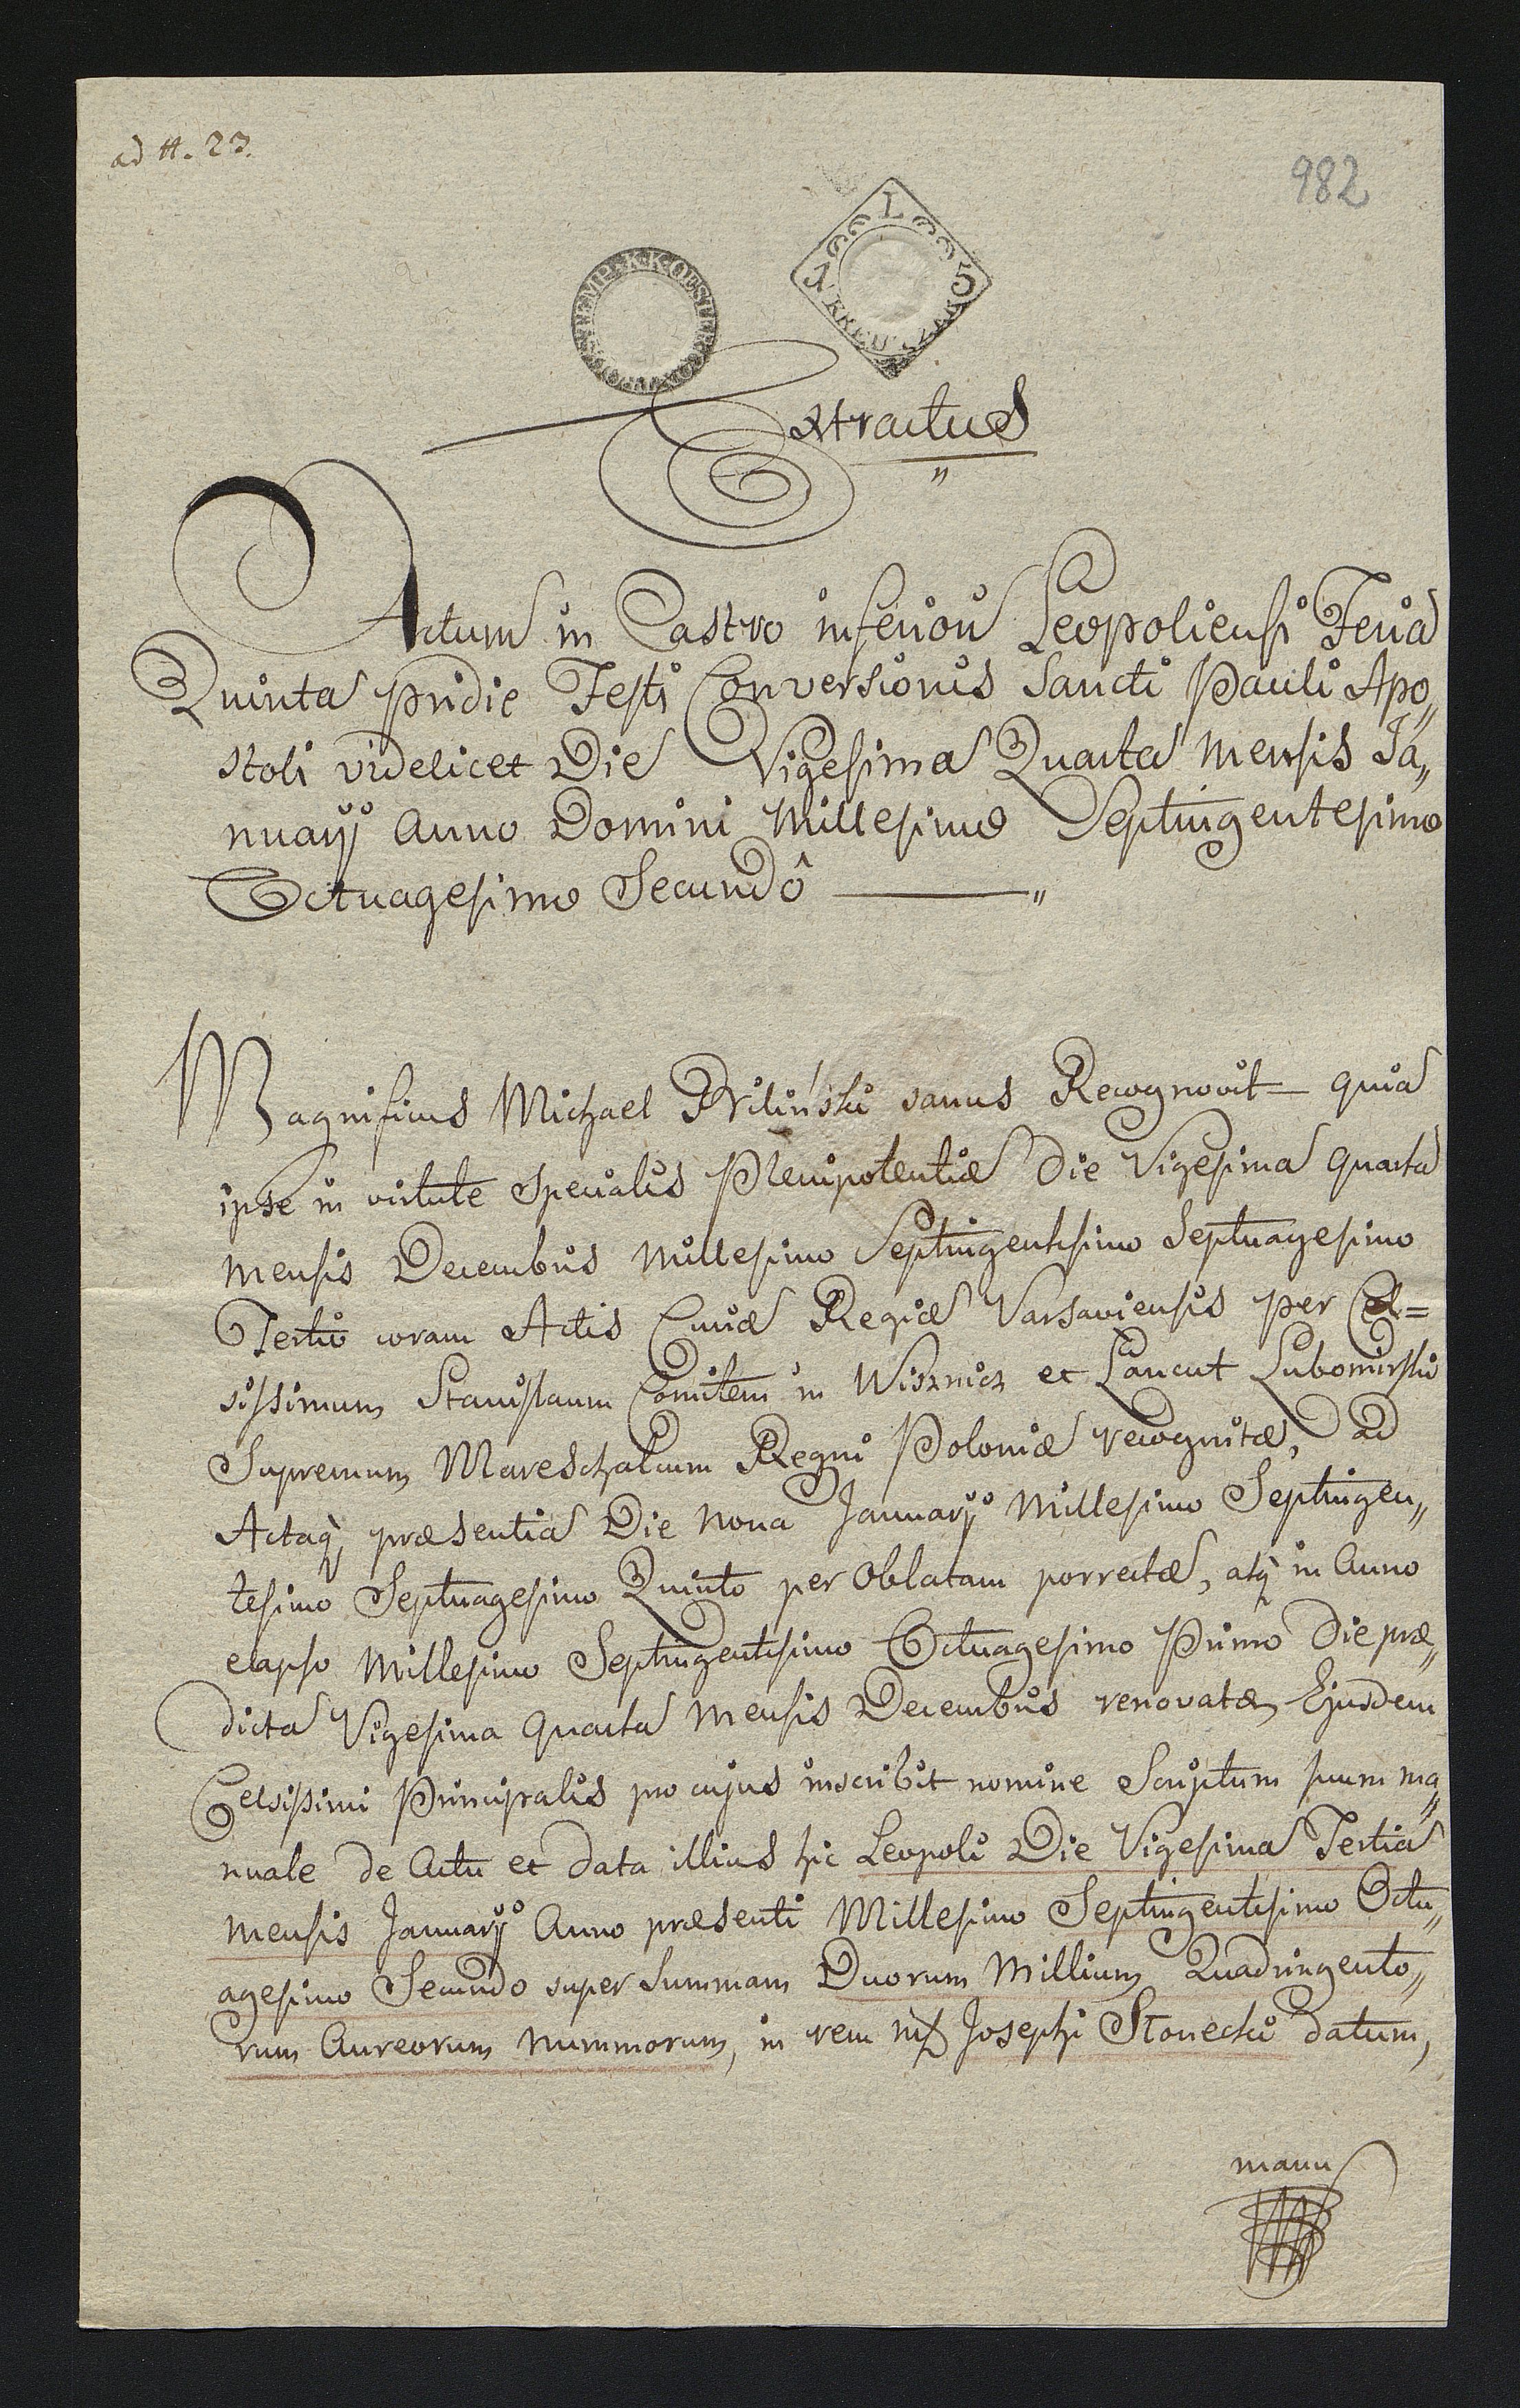 ad #. 23.
982
STEMP. K. K. OESTER
L
15
KREUTZER
Extractus
Actum in Castro inferiori Leopoliensi Feria
Quinta pridie Festi Conversionis Sancti Pauli Apo„
stoli videlicet Die Vigesima Quarta Mensis Ja„
nuarÿ Anno Domini Millesimo Septingentesimo
Octuagesimo Secundô —"
Magnificus Michael Pruliński sanus Recognovit — quia
ipse in virtute specialis Plenipotentiæ Die Vigesima quarta
mensis Decembris Millesimo Septingentesimo Septuagesimo
Tertio coram Actis Curiæ Regiæ Varsaviensis per Cel=
sissimum Stanislaum Comitem in Wisznicz et Lancut Lubomirski
Supremum Mareschalcum Regni Poloniæ recognitæ, ad
Actaq, præsentia Die nona Januarÿ Millesimo Septingen„
tesimo Septuagesimo Quinto per Oblatam porrectæ, atq in Anno
elapso Millesimo Septingentesimo Octuagesimo Primo Die præ„
dicta Vigesima quarta Mensis Decembris renovatæ Ejusdem
Celsissimi Principalis pro cujus inscribit nomine Scriptum suum ma„
nuale de Actu et data illius hic Leopoli Die Vigesima Tertia
mensis Januarÿ Anno præsenti Millesimo Septingentesimo Octu„
agesimo Secundo super Summam Duorum Millium Quadringento„
rum Aureorum Nummorum, in rem Josephi Stonecki datum,
manu